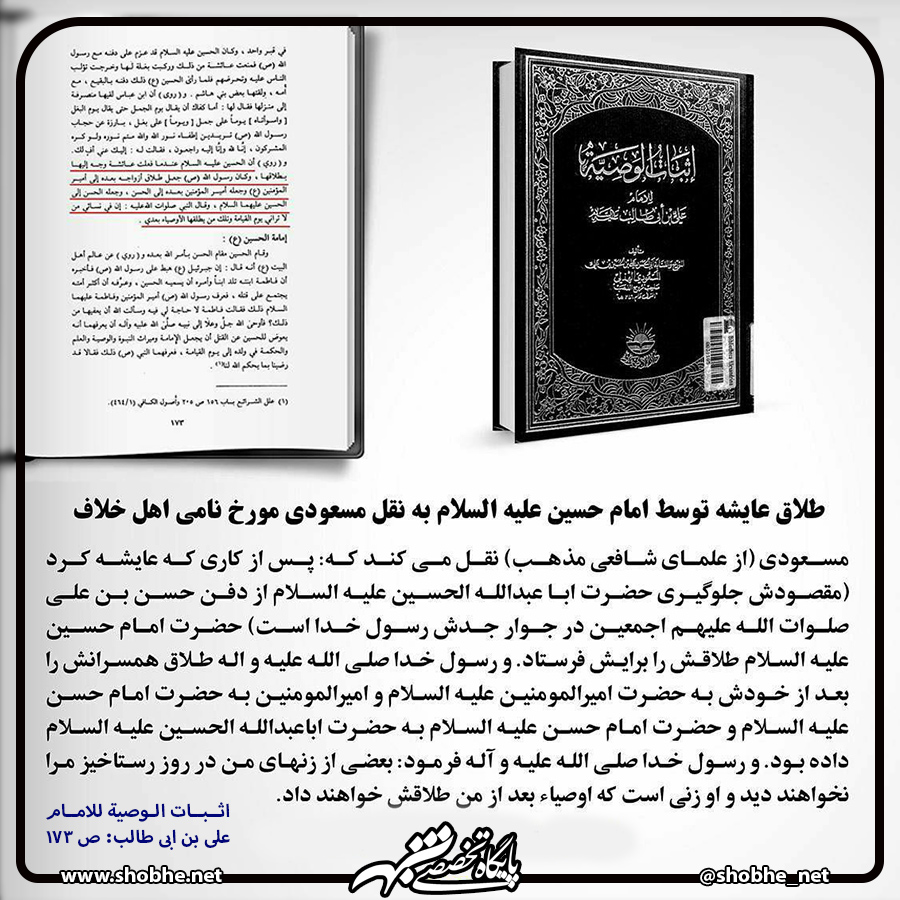 في قبر واحد ، وكان الحسين عليه السلام قد عزم على دفنه مع رسول
الله (ص) فمنعت عائشة من ذلك وركبت بغلة لها وخرجت تؤلب
الناس عليه وتحرضهم فلما رأى الحسين (ع) ذلك دفنه بالبقيع ، مع
أمه ، ولقتها بعض بني هاشم . و (روي) أن ابن عباس لقيها منصرفة
إلى منزلها فقال لها : أما كفاك أن يقال يوم الجمل حتى يقال يوم البغل
[ واسوأتاه ] يوماً على جمل [ ويوماً ] على بغل ، بارزة عن حجاب
رسول الله (ص) تريدين إطفاء نور الله والله متم نوره ولو كره
المشركون ، إنّا لله وإنّا إليه راجعون ، فقالت له : إليك عني أفٍ لك.
و (روي) أن الحسين عليه السلام عندما فعلت عائشة وجه إليها
بطلاقها ، وكان رسول الله (ص) جعل طلاق أزواجه بعده إلى أمير
المؤمنين (ع) وجعله أمير المؤمنين بعده إلى الحسن ، وجعله الحسن إلى
الحسين عليهما السلام ، وقال النبي صلوات الله عليه : إن في نسائي من
لا تراني يوم القيامة وتلك من يطلقها الأوصياء بعدي .
إمامة الحسين (ع) :
وقام الحسين مقام الحسن بأمر الله بعده و ( روي ) عن عالم أهل
البيت (ع) أنه قال : إن جبرئيل (ع) هبط على رسول الله (ص) فأخبره
أن فاطمة ابنته تلد ابناً وأمره أن يسميه الحسين ، وعرّفه أن أكثر أمته
يجتمع على قتله ، فعرف رسول الله (ص) أمير المؤمنين وفاطمة عليهما
السلام ذلك فقالت فاطمة لا حاجة لي فيه وسألت الله أن يعفيها من
ذلك؟ فأوحى الله جلّ وعلا إلى نبيه صلّى الله عليه وآله أن يعرفهما أنه
يعوض للحسين عن القتل أن يجعل الإمامة وميراث النبوة والوصية والعلم
والحكمة في ولده إلى يوم القيامة ، فعرفهما النبي (ص) ذلك فقالا قد
رضينا بما يحكم الله لنا(١).
(١) علل الشرائع باب ١٥٦ ص ٢٠٥ وأصول الكافي (٤٦٤/١).
١٧٣
إثبات الوصية
للإمام
علي بن أبي طالب عليه السلام
تأليف
طلاق عایشه توسط امام حسین علیه السلام به نقل مسعودی مورخ نامی اهل خلاف
مسعودی (از علمای شافعی مذهب) نقل می کند که: پس از کاری که عایشه کرد
(مقصودش جلوگیری حضرت ابا عبدالله الحسین علیه السلام از دفن حسن بن علی
صلوات الله علیهم اجمعین در جوار جدش رسول خدا است) حضرت امام حسین
علیه السلام طلاقش را برایش فرستاد. و رسول خدا صلی الله علیه و اله طلاق همسرانش را
بعد از خودش به حضرت امیرالمومنین علیه السلام و امیرالمومنین به حضرت امام حسن
علیه السلام و حضرت امام حسن علیه السلام به حضرت اباعبدالله الحسین علیه السلام
داده بود. و رسول خدا صلی الله علیه و آله فرمود: بعضی از زنهای من در روز رستاخیز مرا
نخواهند دید و او زنی است که اوصیاء بعد از من طلاقش خواهند داد.
اثبات الوصیة للامام
علی بن ابی طالب: ص ١٧٣
www.shobhe.net
پایگاه تخصصی شبهه
@shobhe_net